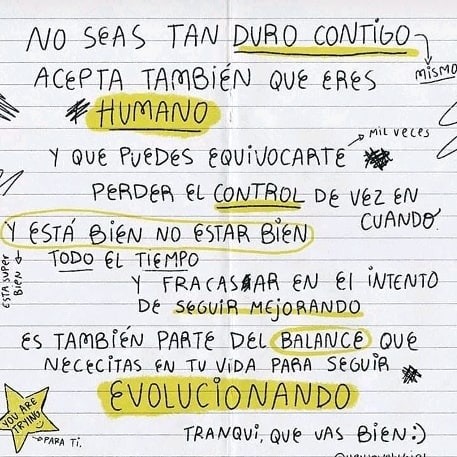 NO SEAS TAN DURO CONTIGO
MISMO
ACEPTA TAMBIÉN QUE ERES
HUMANO
MIL VECES
Y QUE PUEDES EQUIVOCARTE
PERDER EL CONTROL DE VEZ EN
CUANDO.
Y ESTÁ BIEN NO ESTAR BIEN
TODO EL TIEMPO
ESTA SUPER
BIEN
Y FRACASAR EN EL INTENTO
DE SEGUIR MEJORANDO
ES TAMBIÉN PARTE DEL BALANCE QUE
NECECITAS EN TU VIDA PARA SEGUIR
EVOLUCIONANDO
YOU ARE
TRYING
PARA TI.
TRANQUI, QUE VAS BIEN:)